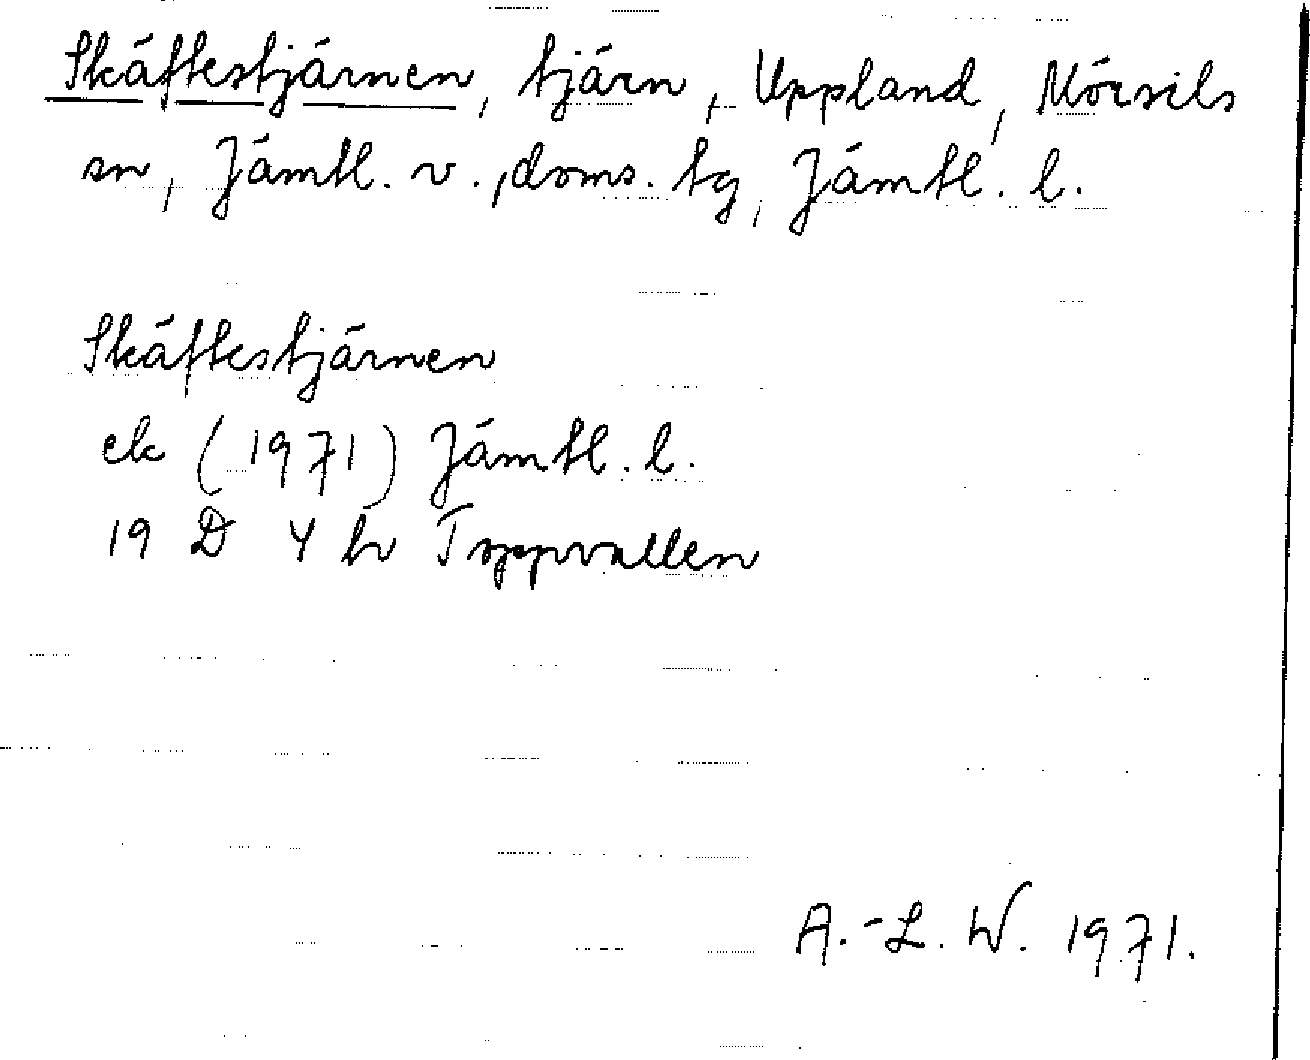 Skäftestjärnen, tjärn, Uppland, Mörsils
sn, Jämtl. v., doms. tg, Jämtl. l.
Skäftestjärnen
ek (1971) Jämtl. l.
19 D 4 h Toppvallen
A.-L. W. 1971.